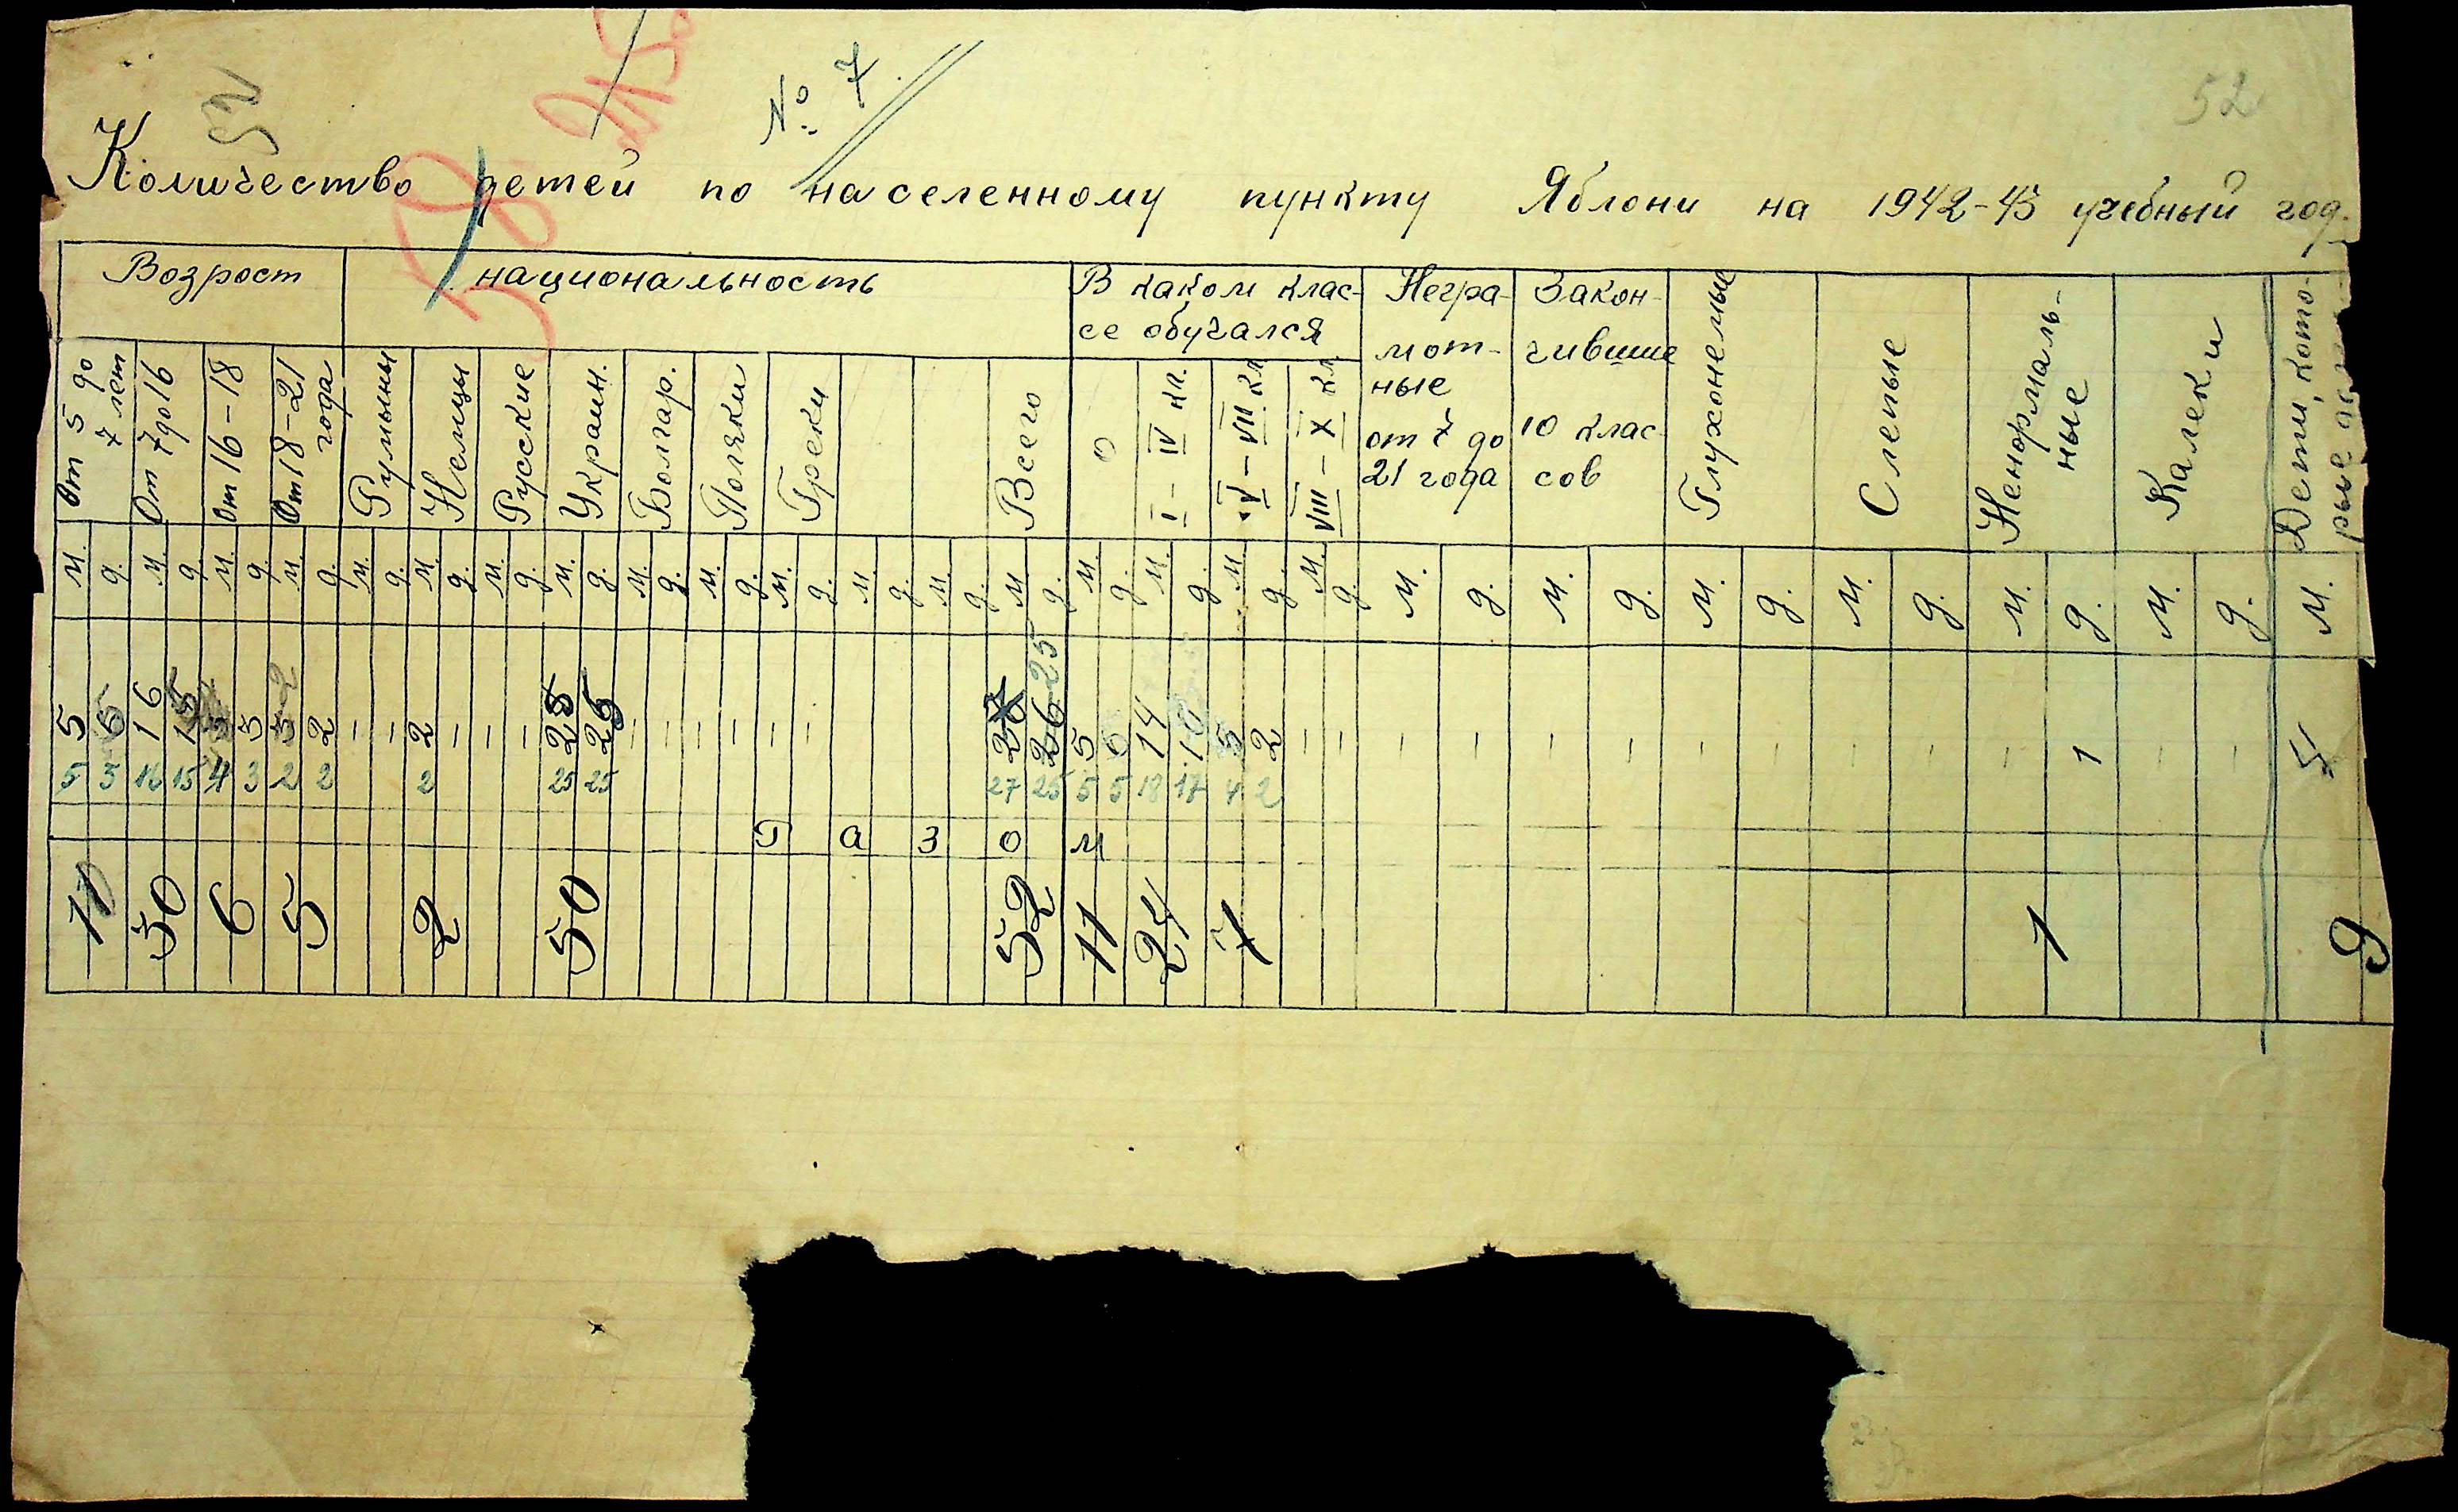 52
№ 7
52
Количество детей по населенному пункту Яблони на 1942-43 учебный год.
Возрост
национальность
В каком клас-
се обучался
Негра-
мот-
ные
от 7 до
21 года
Закон-
чивши
10 клас
сов
Глухонемые
Слепые
Ненормаль-
ные
Калеки
Дети, кото-
рые
От 5 до
7 лет
От 7 до 16
От 16-18
От 18-21
года
Румыны
Немцы
Русские
Украин.
Болгар.
Поляки
Греки
Всего
0
I - IV кл.
V - VII кл
VIII - X кл.
м. д. м. д. м. д. м. д. м. д. м. д. м. д. м. д. м. д. м. д. м. д. м. д. м. д. м д. м. д. м. д. м. д. м. д. м. д. м. д. м. д. м. д. м. д. м. д. м.
5 6 16 15 3 3 2 2 - - 2 - - - 25 25 - - - - - - 26 25 5 6 14 10 5 2 - - - - - - - - - - - 1 - -
5 5 16 15 4 3 2 2 2 25 25 27 25 5 5 18 17 4 2
Г а з о м
11 30 6 5 2 50 52 11 24 7 1 9